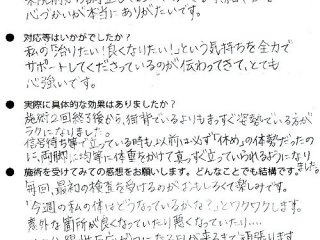 心づかいが本当にありがたいです。
● 対応等はいかがでしたか？
私の「治りたい！良くなりたい！」という気持ちを全力で
サポートしてくださっているのが伝わってきて、とても
心強いです。
● 実際に具体的な効果はありましたか？
施術2回終了後から、街背でいるよりもまっすぐ姿勢でいる方が
ラクになりました。
信号待ち等で立っている時も以前は必ず「休め」の体勢だったの
に、両脚に均等に体重をかけて真っすぐ立っていられるようになり
ました。
● 施術を受けてみての感想をお願いします。どんなことでも結構です。
毎回、最初の検査を受けるのがおもしろくて楽しみです。
「今週の私の体はどうなっているかな？」とワクワクします。
意外な箇所が良くなっていたり悪くなっていたり‥‥